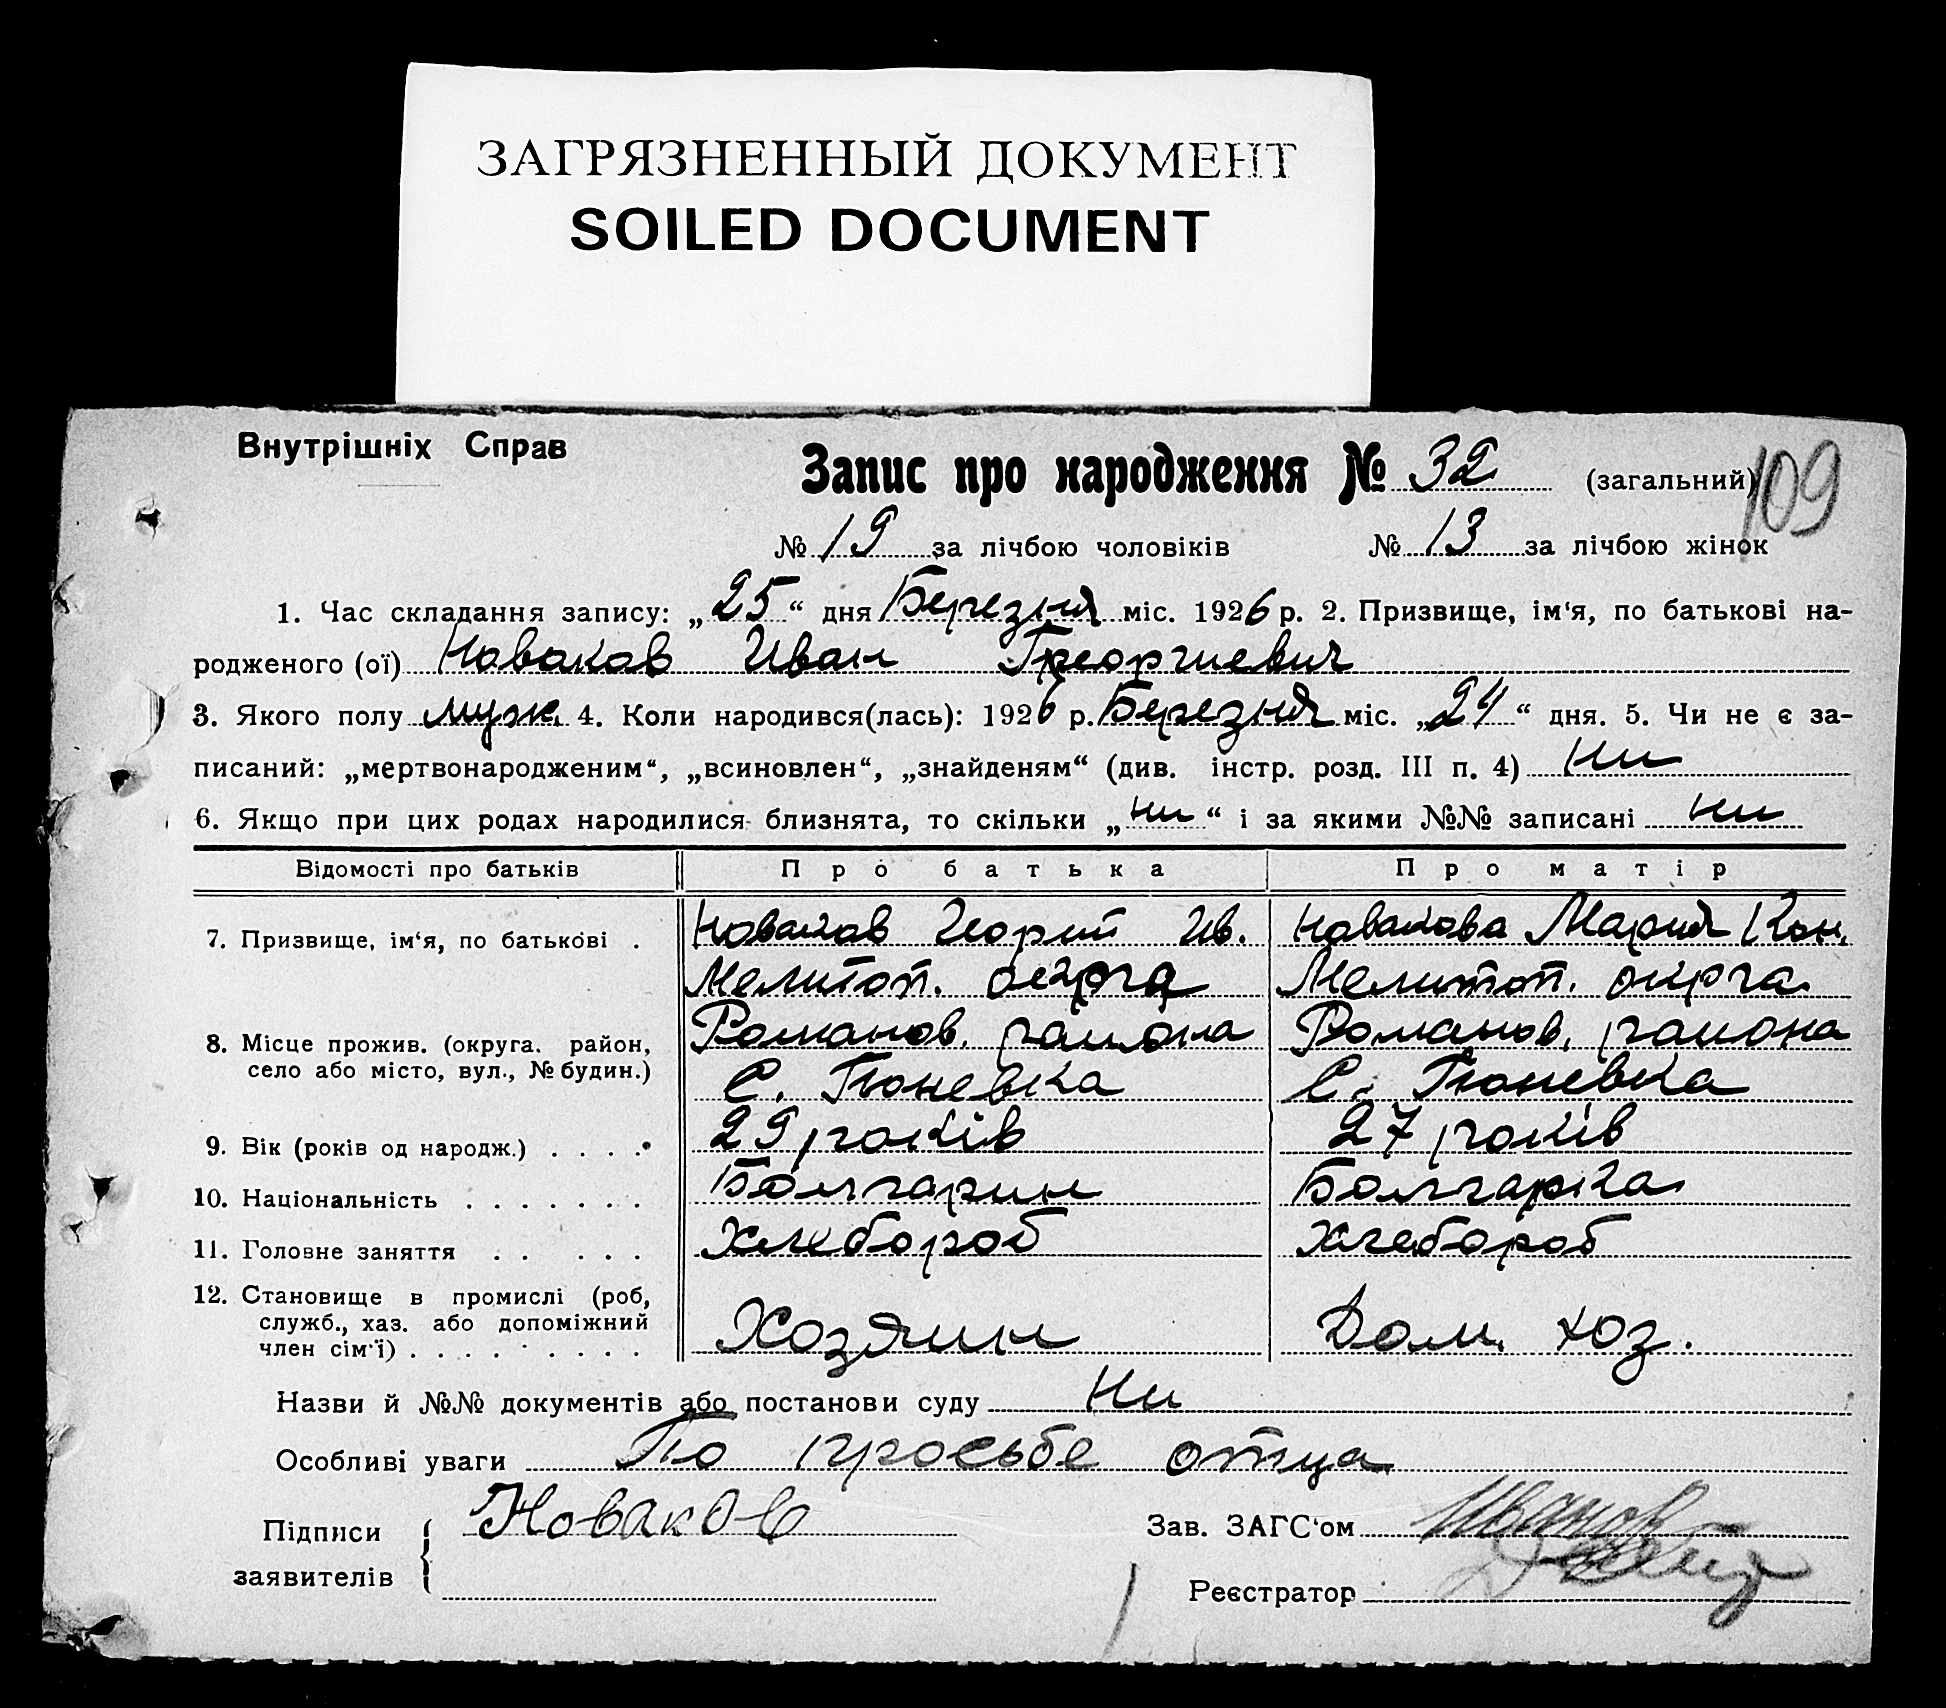 ЗАГРЯЗНЕННЫЙ ДОКУМЕНТ
SOILED DOCUMENT
Внутрішніх Справ
Запис про народження № 32 (загальний) 109
№ 19 за лічбою чоловіків № 13 за лічбою жінок
1. Час складання запису: „25“ дня Березня міс. 1926 р. 2. Призвище, ім‘я, по батькові на-
родженого (ої) Новаков Иван Георгиевич
3. Якого полу муж. 4. Коли народився(лась): 1926 р. Березня міс. „24“ дня. 5. Чи не є за-
писаний: „мертвонародженим“, „всиновлен“, „знайденям“ (див. інстр. розд. III п. 4) Ни
6. Якщо при цих родах народилися близнята, то скільки „ни“ і за якими №№ записані ни
Відомості про батьків Про батька Про матір
7. Призвище, ім‘я, по батькові . Новаков Георгий Ив. Новакова Мария Кон.
Мелитоп. окрга Мелитоп. окрга
8. Місце прожив. (округа. район, Романов. района Романов. района
село або місто, вул., № будин.) С. Гюневка С. Гюневка
9. Вік (років од народж.) . . . . 29 років 27 років
10. Національність . . . . . . . Болгарин Болгарка
11. Головне заняття . . . . . Хлебороб Хлебороб
12. Становище в промислі (роб,
служб., хаз. або допоміжний Хозяин Дом. хоз.
член сім‘ї) . . . . . . . . .
Назви й №№ документів або постанови суду Ни
Особливі уваги По просьбе отца
Підписи Новаков Зав. ЗАГС‘ом Иванов
заявителів Реєстратор